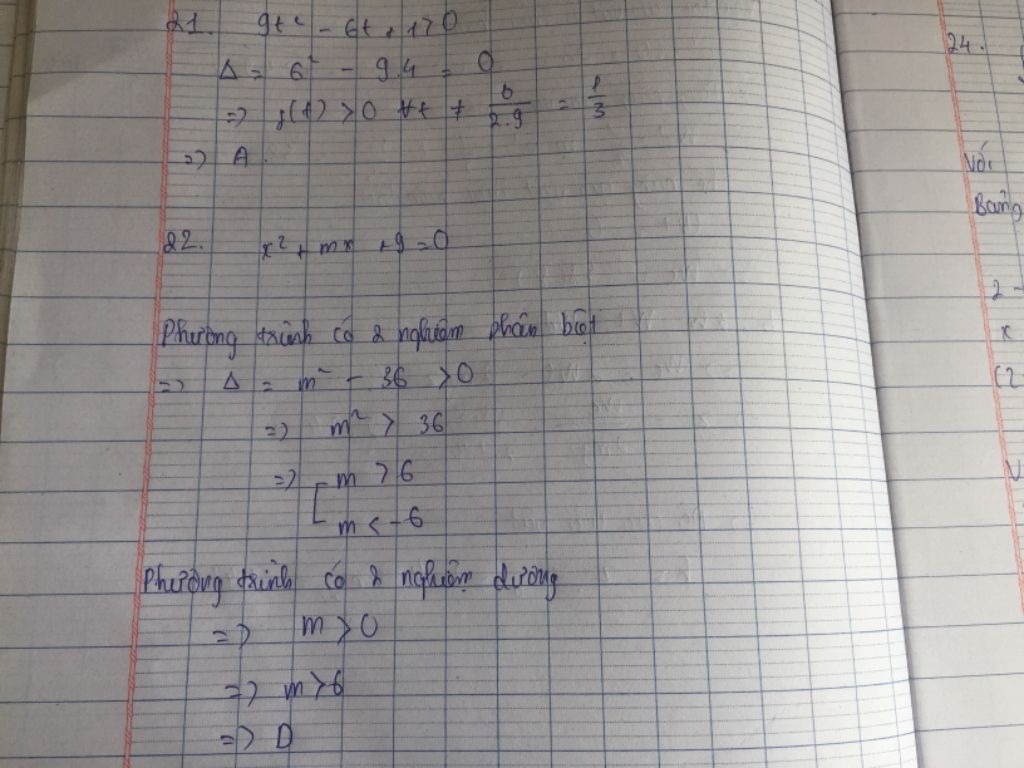 21. 9t² - 6t + 1 > 0
Δ = 6² - 9.4 = 0
=> f(t) > 0 ∀t ≠ 6/2.9 = 1/3
=> A.
22. x² + mx + 9 = 0
Phương trình có 2 nghiệm phân biệt
=> Δ = m² - 36 > 0
=> m² > 36
=> [ m > 6
m < -6
Phương trình có 2 nghiệm dương
=> m > 0
=> m > 6
=> D
24.
Với
Bảng
2 -
x
(2
V